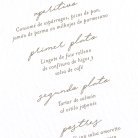 aperitivo
Consomé de espárragos, picos de pan,
jamón de pavo en milhojas de parmesano
primer plato
Lingote de foie relleno
de confitura de higos y
salsa de café
segundo plato
Tartar de salmón
al estilo japonés
postres